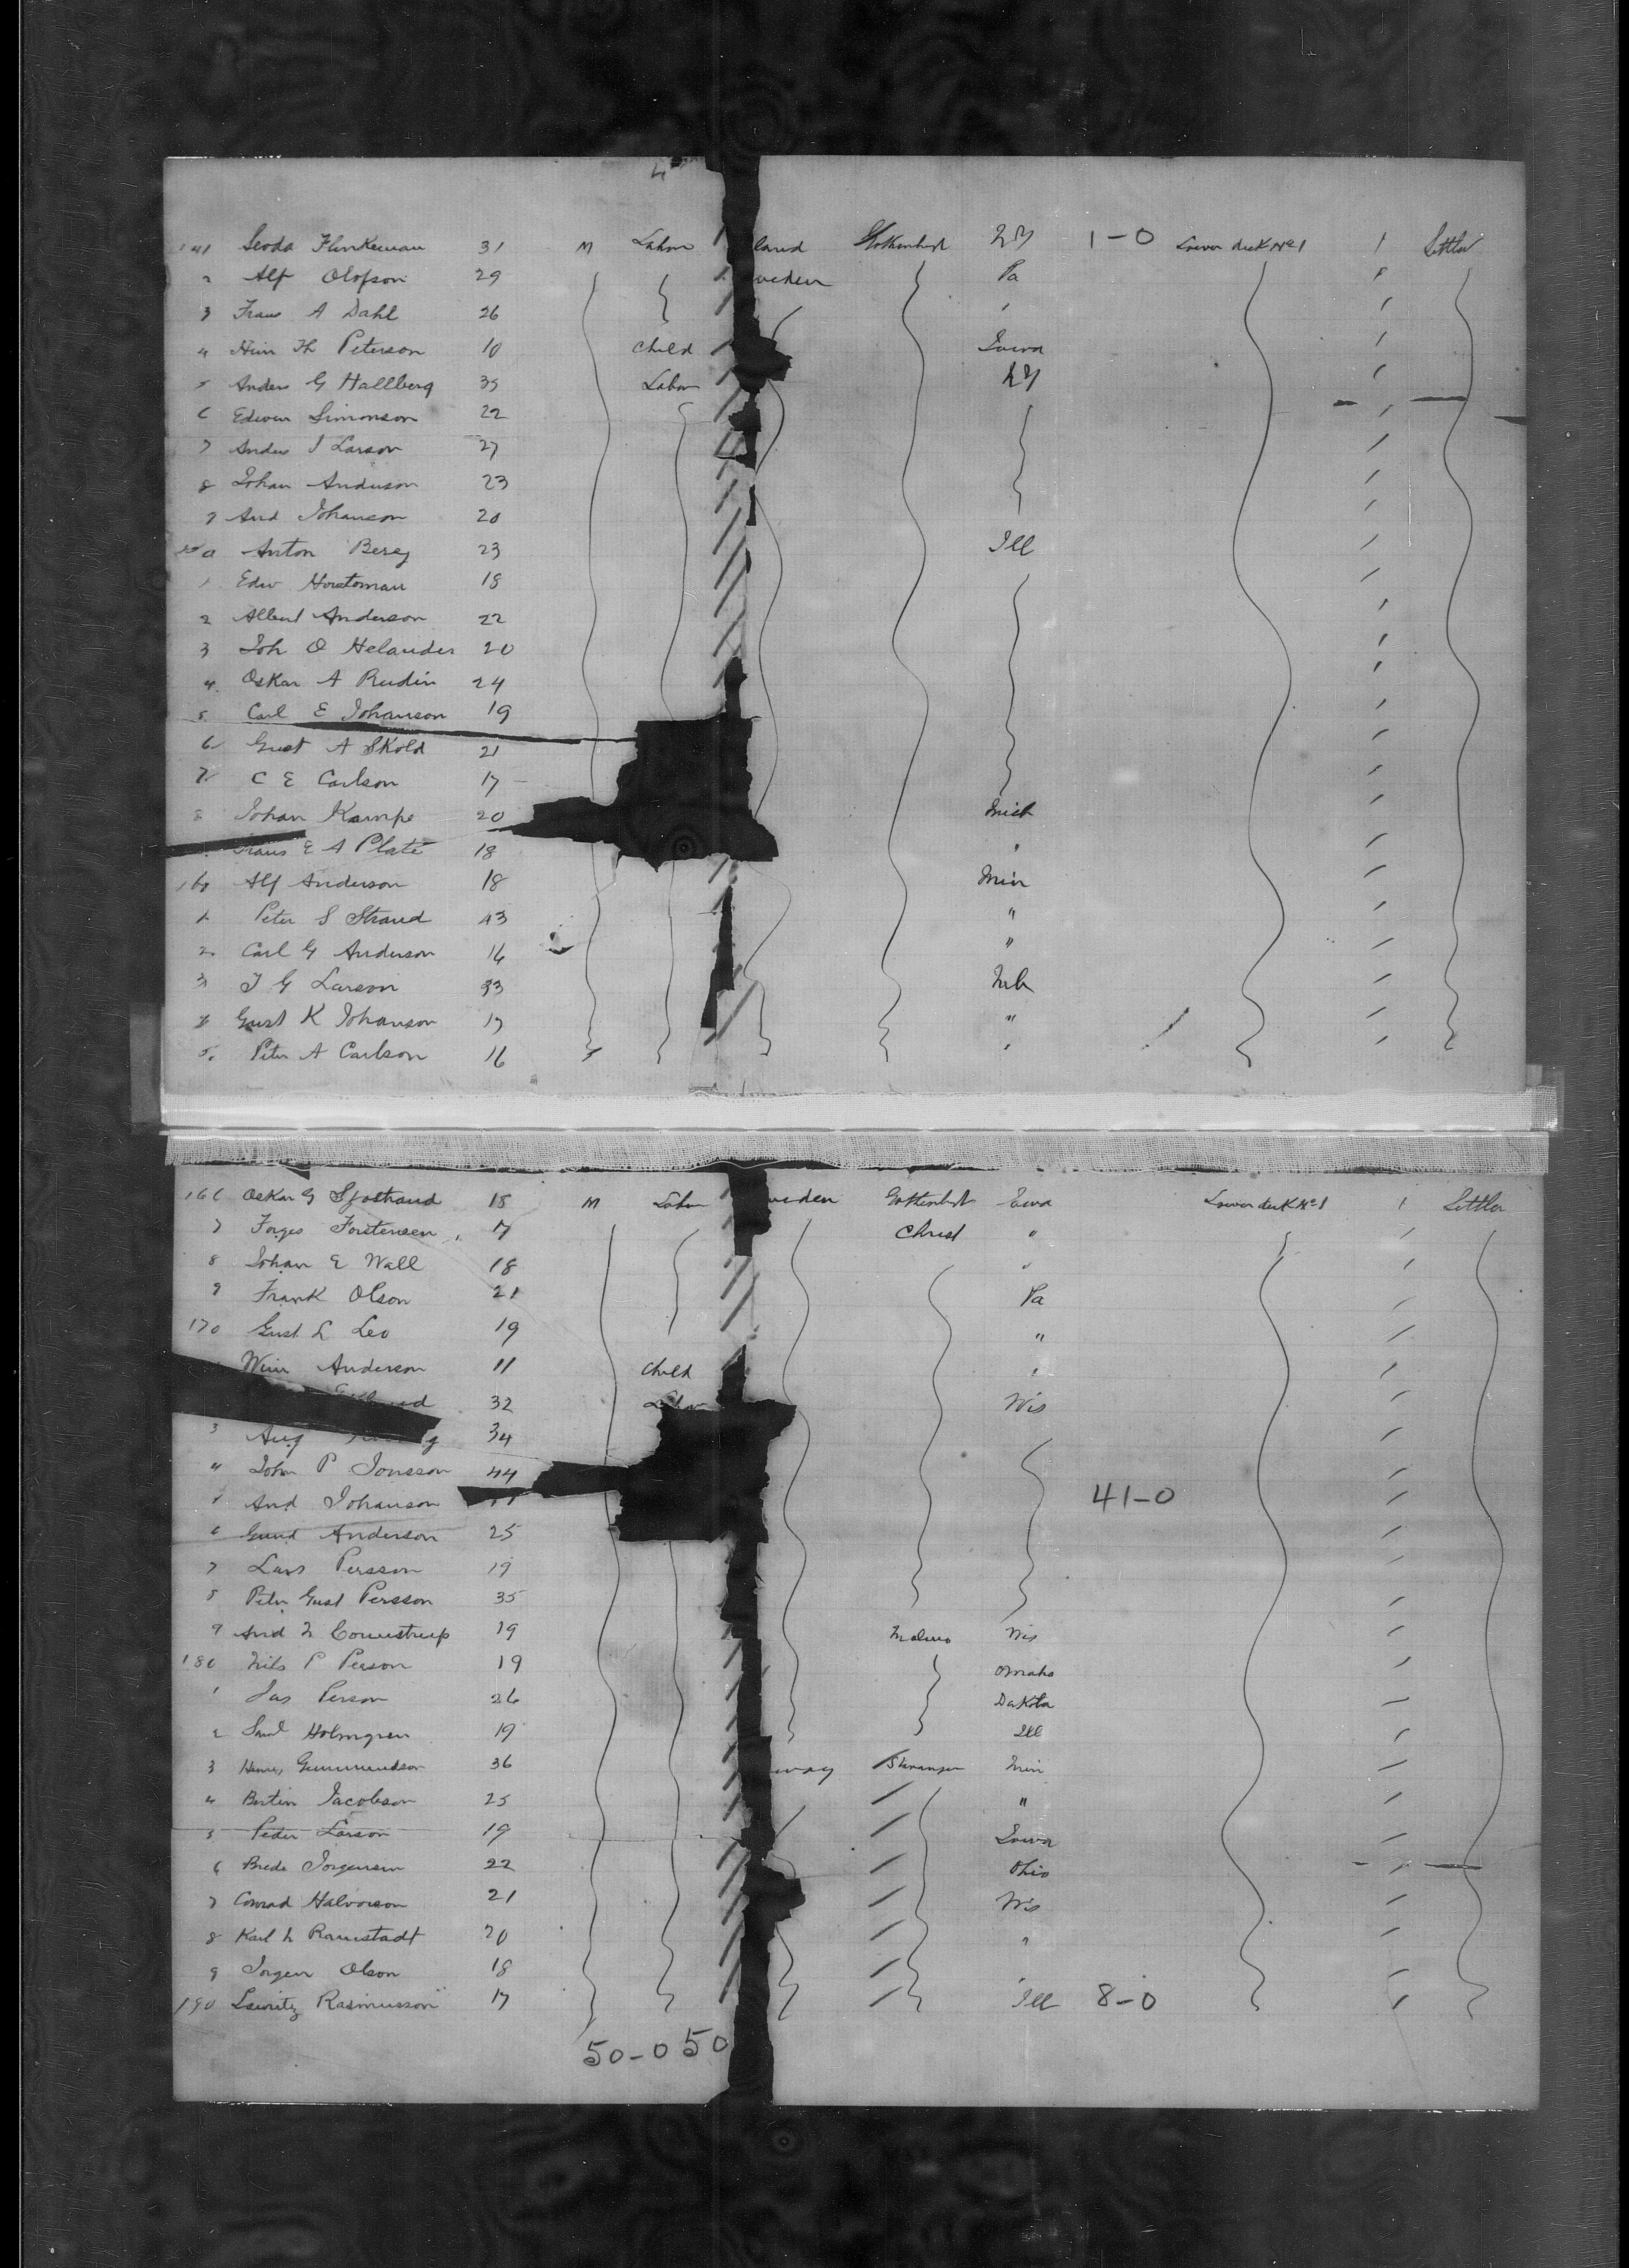 141 Seoda Flinkeman 31 M Labor land NY 1-0 Lower deck No 1 1 Settler
2 Alf Olofson 29 weden Pa
3 Frans A Dahl 26 "
4 Th Peterson 10 Child Iowa
5 Anders G Hallberg 35 Labor NY
6 Edwin Simonson 22
7 Anders J Larson 27
8 Johan Anderson 23
9 And Johanson 20
150 Anton Berg 23 Ill
1 Edw 18
2 Albert Anderson 22
3 Joh O Helander 20
4 Oskar A Rudin 24
5 Carl E Johanson 19
6 Gust A Skold 21
7 C E Carlson 17
8 Johan Kampe 20 Mich
Frans E A Plate 18 "
160 Alf Anderson 18 Min
1 Peter S Strand 43 "
2 Carl G Anderson 16 "
3 J G Larson 33 Neb
4 Gust K Johanson 17 "
5 Peter A Carlson 16 "
166 Oskar G Sjostrand 18 M Labor weden Iowa Lower deck No 1 1 Settler
7 Torges Torstensen 17 Christ "
8 Johan E Wall 18 "
9 Frank Olson 21 Pa
170 Gust L Leo 19 "
Anderson 11 Child "
32 Wis
3 Aug 34
4 John P Jonsson 44
5 And Johanson 41-0
6 Gund Anderson 25
7 Lars Persson 19
8 Peter Gust Persson 35
9 And N 19 Malmo Wis
180 Nils P Person 19 Omaha
1 Jas Person 26 Dakota
2 Saml Holmgren 19 Ill
3 Gummundson 36 way Stavanger Min
4 Bertin Jacobson 25 "
5 Peder Larson 19 Iowa
6 Brede Jorgensen 22 Ohio
7 Conrad Halvorson 21 Wis
8 Karl L Ramstadt 20 "
9 Jorgen Olson 18
190 Rasmusson 17 Ill 8-0
50-0 50